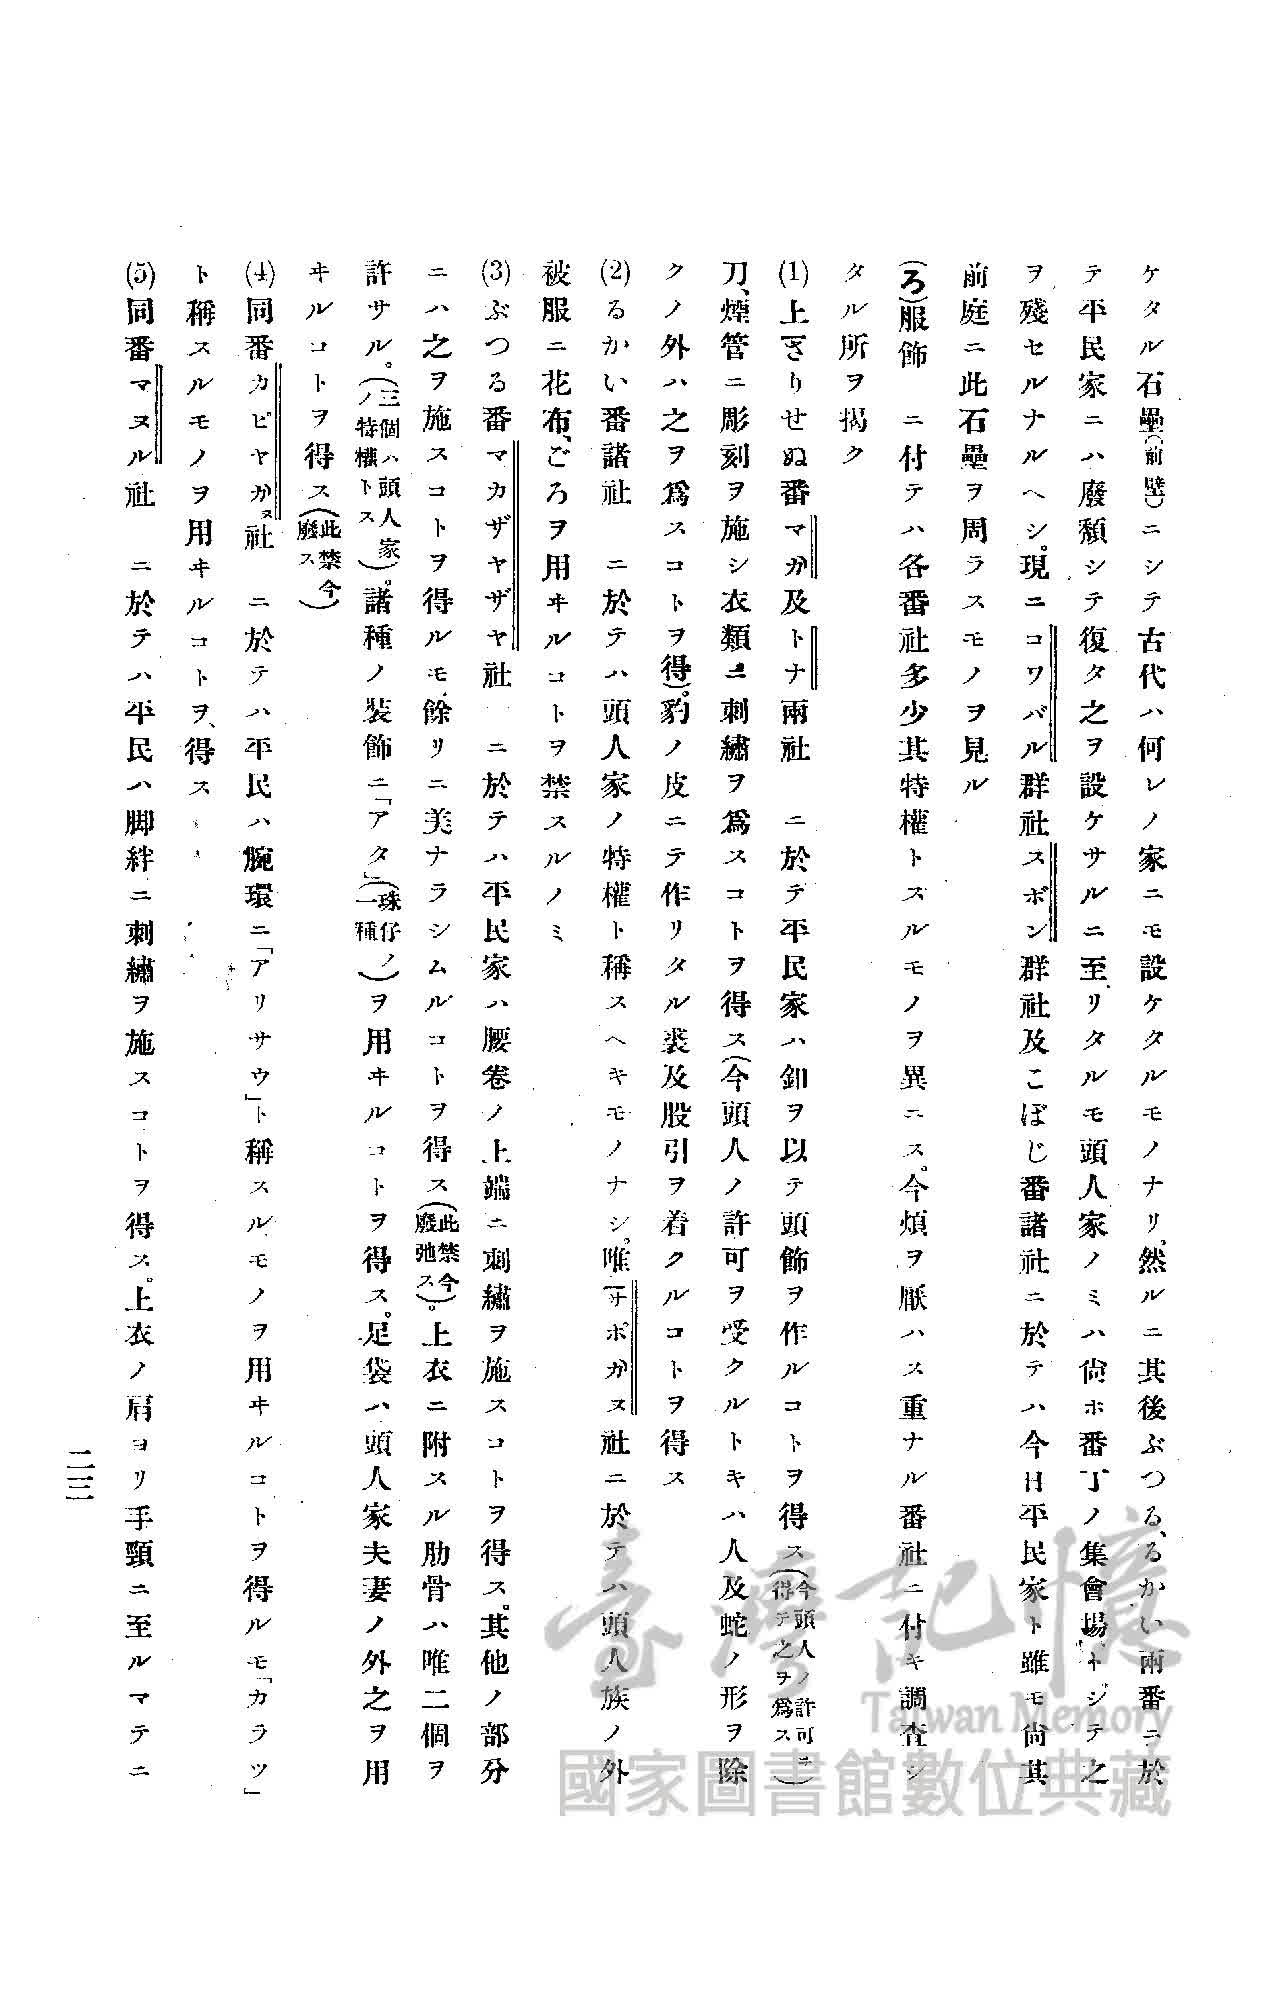 ケタル石壘(前壁)ニシテ古代ハ何レノ家ニモ設ケタルモノナリ、然ルニ其後ぶつる、るかい兩番ニ於
テ平民家ニハ廢頽シテ復タ之ヲ設ケサルニ至リタルモ頭人家ノミハ尙ホ番丁ノ集會場トシテ之
ヲ殘セルナルヘシ。現ニコワバル群社スボン群社及こぼじ番諸社ニ於テハ今日平民家ト雖モ尙其
前庭ニ此石壘ヲ周ラスモノヲ見ル
(ろ)服飾 ニ付テハ各番社多少其特權トスルモノヲ異ニス。今煩ヲ厭ハス重ナル番社ニ付キ調査シ
タル所ヲ揭ク
(1)上ざりせぬ番マガ及トナ兩社 ニ於テ平民家ハ釦ヲ以テ頭飾ヲ作ルコトヲ得ス(今頭人ノ許可ヲ得テ之ヲ爲ス)
刀、煙管ニ彫刻ヲ施シ衣類ニ刺繡ヲ爲スコトヲ得ス(今頭人ノ許可ヲ受クルトキハ人及蛇ノ形ヲ除
クノ外ハ之ヲ爲スコトヲ得)。豹ノ皮ニテ作リタル裘及股引ヲ着クルコトヲ得ス
(2)るかい番諸社 ニ於テハ頭人家ノ特權ト稱スヘキモノナシ。唯サポガヌ社ニ於テハ頭人族ノ外
被服ニ花布、ごろヲ用ヰルコトヲ禁スルノミ
(3)ぶつる番マカザヤザヤ社 ニ於テハ平民家ハ腰卷ノ上端ニ刺繡ヲ施スコトヲ得ス。其他ノ部分
ニハ之ヲ施スコトヲ得ルモ、餘リニ美ナラシムルコトヲ得ス(此禁今廢弛ス)。上衣ニ附スル肋骨ハ唯二個ヲ
許サル。(三個ハ頭人家ノ特權トス)。諸種ノ裝飾ニ「アタ」(珠仔ノ一種)ヲ用ヰルコトヲ得ス。足袋ハ頭人家夫妻ノ外之ヲ用
ヰルコトヲ得ス(此禁今廢ス)
(4)同番カピヤガヌ社 ニ於テハ平民ハ腕環ニ「アリサウ」ト稱スルモノヲ用ヰルコトヲ得ルモ「カラツ」
ト稱スルモノヲ用ヰルコトヲ、得ス
(5)同番マヌル社 ニ於テハ平民ハ脚絆ニ刺繡ヲ施スコトヲ得ス。上衣ノ肩ヨリ手頸ニ至ルマテニ
二三
臺灣記憶
Taiwan Memory
國家圖書館數位典藏